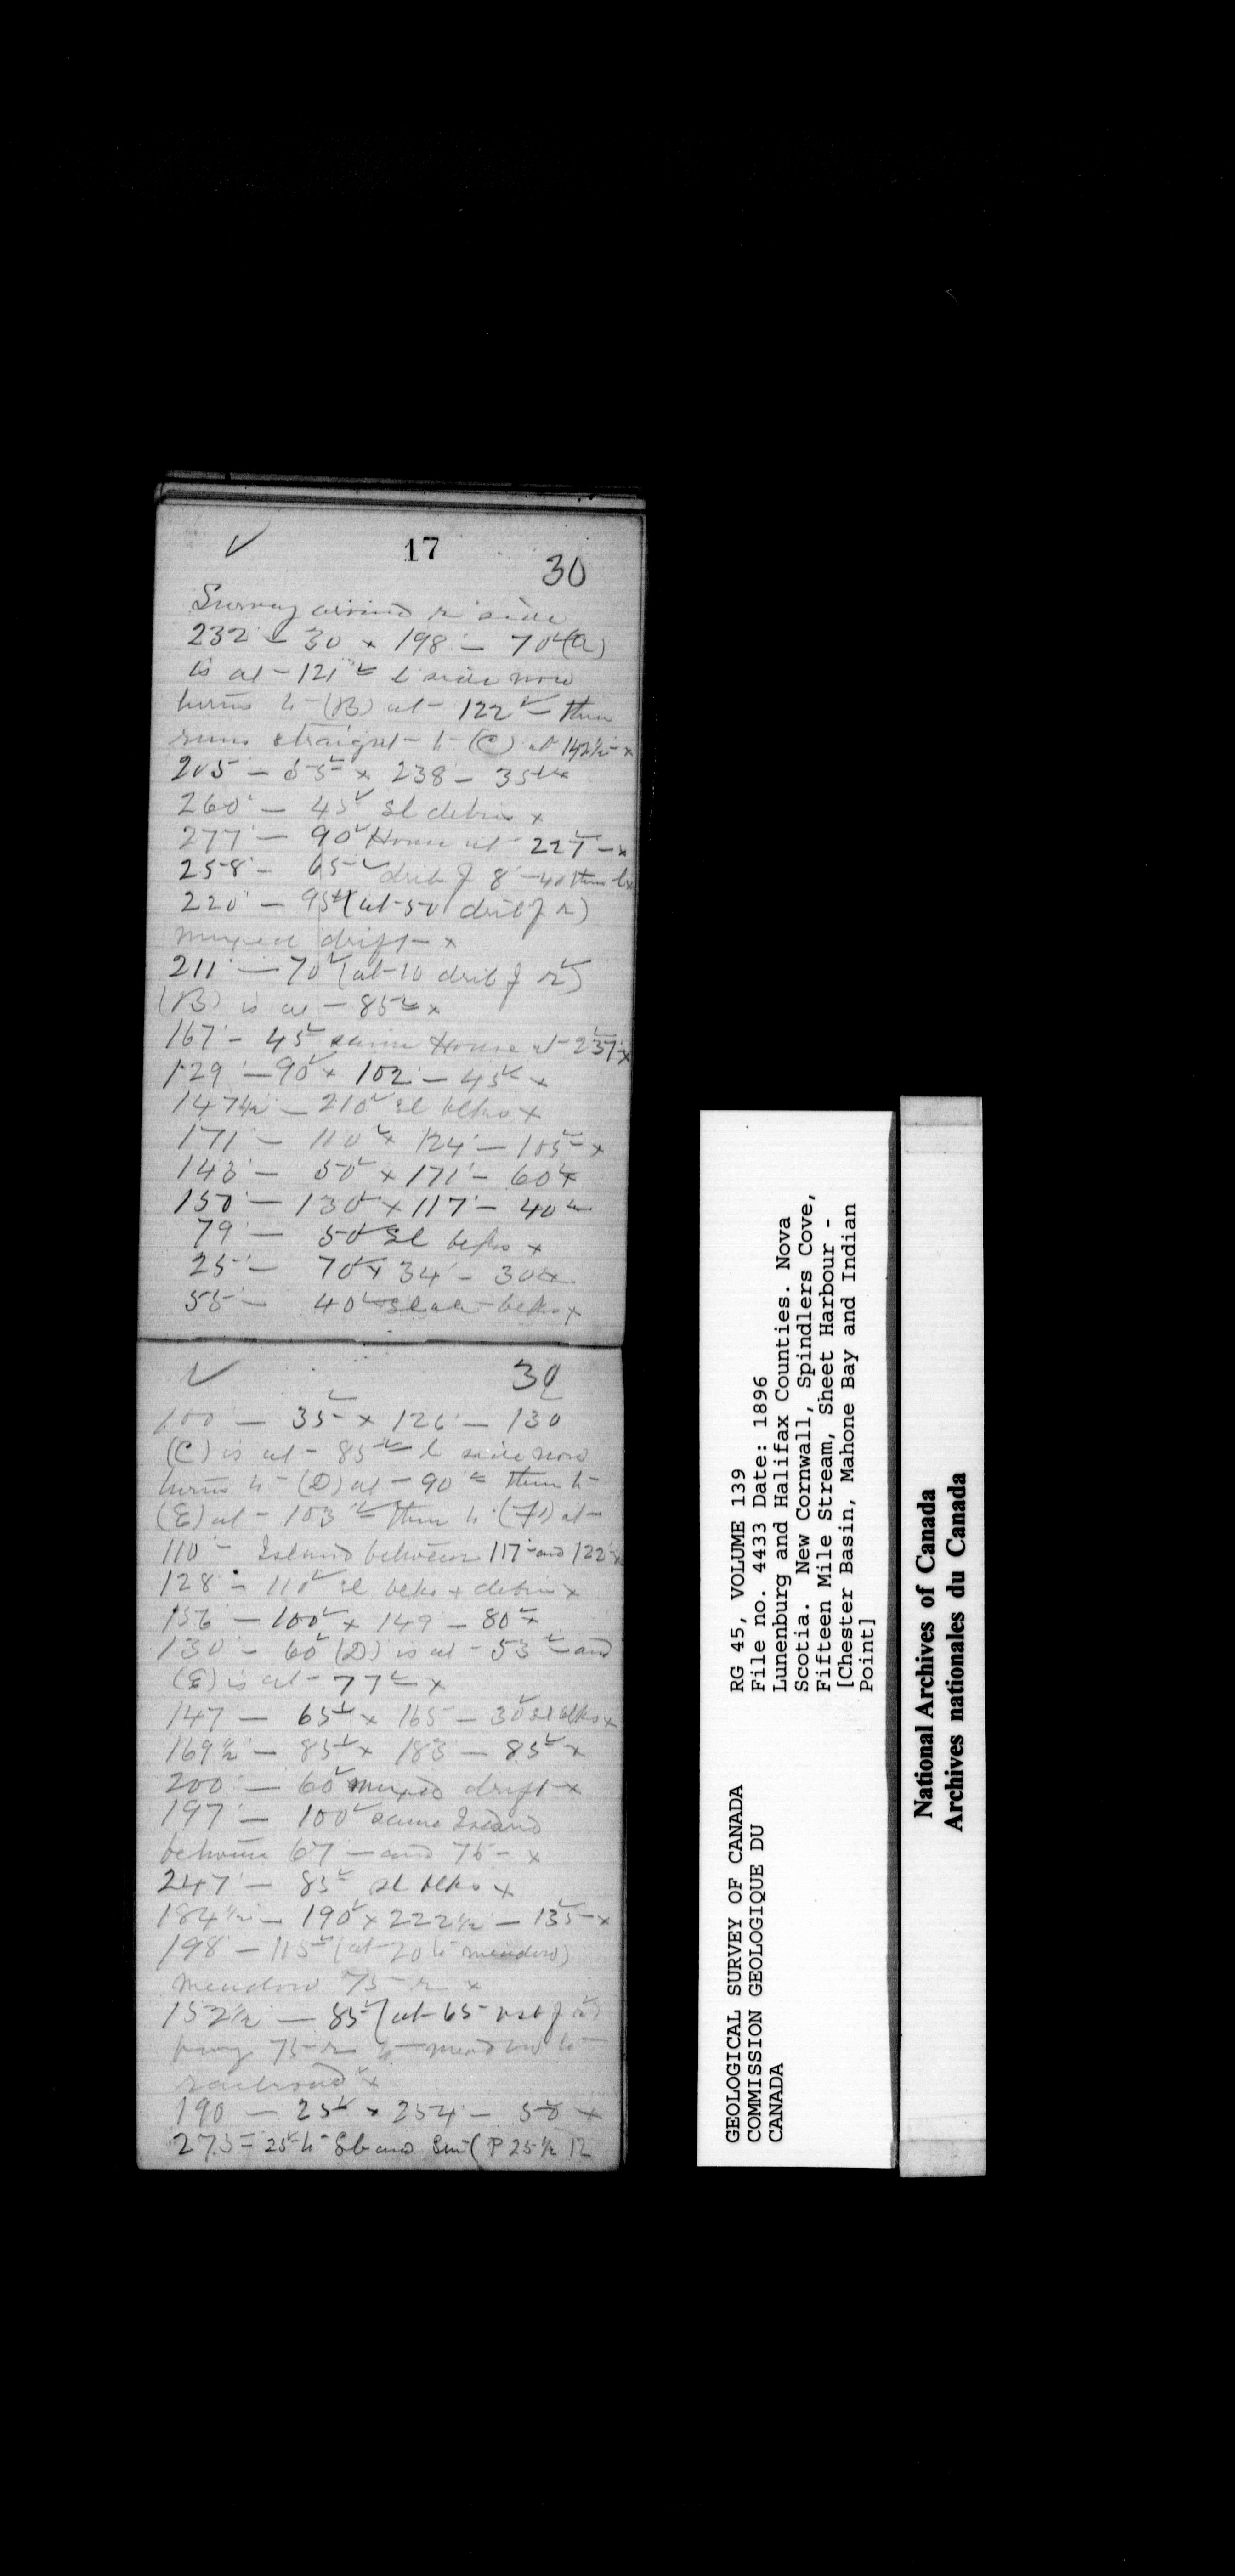 17
30
Survey around r side
232 – 30 x 198 – 70 (A)
is at – 121 l side now
turns to (B) at – 122 – then
runs straight – to (C) at 142½ x
205 – 55 x 238 – 35 x
260 – 45 sl debris x
277 – 90 House at 227 – x
258 – 65 drib f 8 – 40 then l x
220 – 95 (at 50 drib f r)
mixed drift – x
211 – 70 (at 10 drib f r)
(B) is at – 85 x
167 – 45 same House at 237 x
129 – 90 x 102 – 45 x
147½ – 210 sl blks x
171 – 110 x 124 – 105 x
143 – 50 x 171 – 60 x
150 – 130 x 117 – 40
79 – 50 sl blks x
25 – 70 x 34 – 30 x
55 – 40 slate blks x
30
100 – 35 x 126 – 130
(C) is at – 85 l side now
turns to (D) at – 90 then to
(E) at – 103 then to (F) at –
110 – Island between 117 and 122 x
128 – 110 sl blks + debris x
156 – 100 x 149 – 80 x
130 – 60 (D) is at – 53 and
(E) is at – 77 x
147 – 65 x 165 – 30 sl blks x
169½ – 85 x 183 – 85 x
200 – 60 mixed drift x
197 – 100 same Island
between 67 – and 75 – x
247 – 85 sl blks x
184½ – 190 x 222½ – 135 x
198 – 115 (at 20 to meadow)
meadow 75 r x
152½ – 85 (at 65 f r)
75 r to meadow to
railroad x
190 – 25 x 254 – 50 x
275 – 25 to (P 25½ 12
RG 45, VOLUME 139
File no. 4433 Date: 1896
Lunenburg and Halifax Counties. Nova
Scotia. New Cornwall, Spindlers Cove,
Fifteen Mile Stream, Sheet Harbour -
[Chester Basin, Mahone Bay and Indian
Point]
GEOLOGICAL SURVEY OF CANADA
COMMISSION GEOLOGIQUE DU
CANADA
National Archives of Canada
Archives nationales du Canada